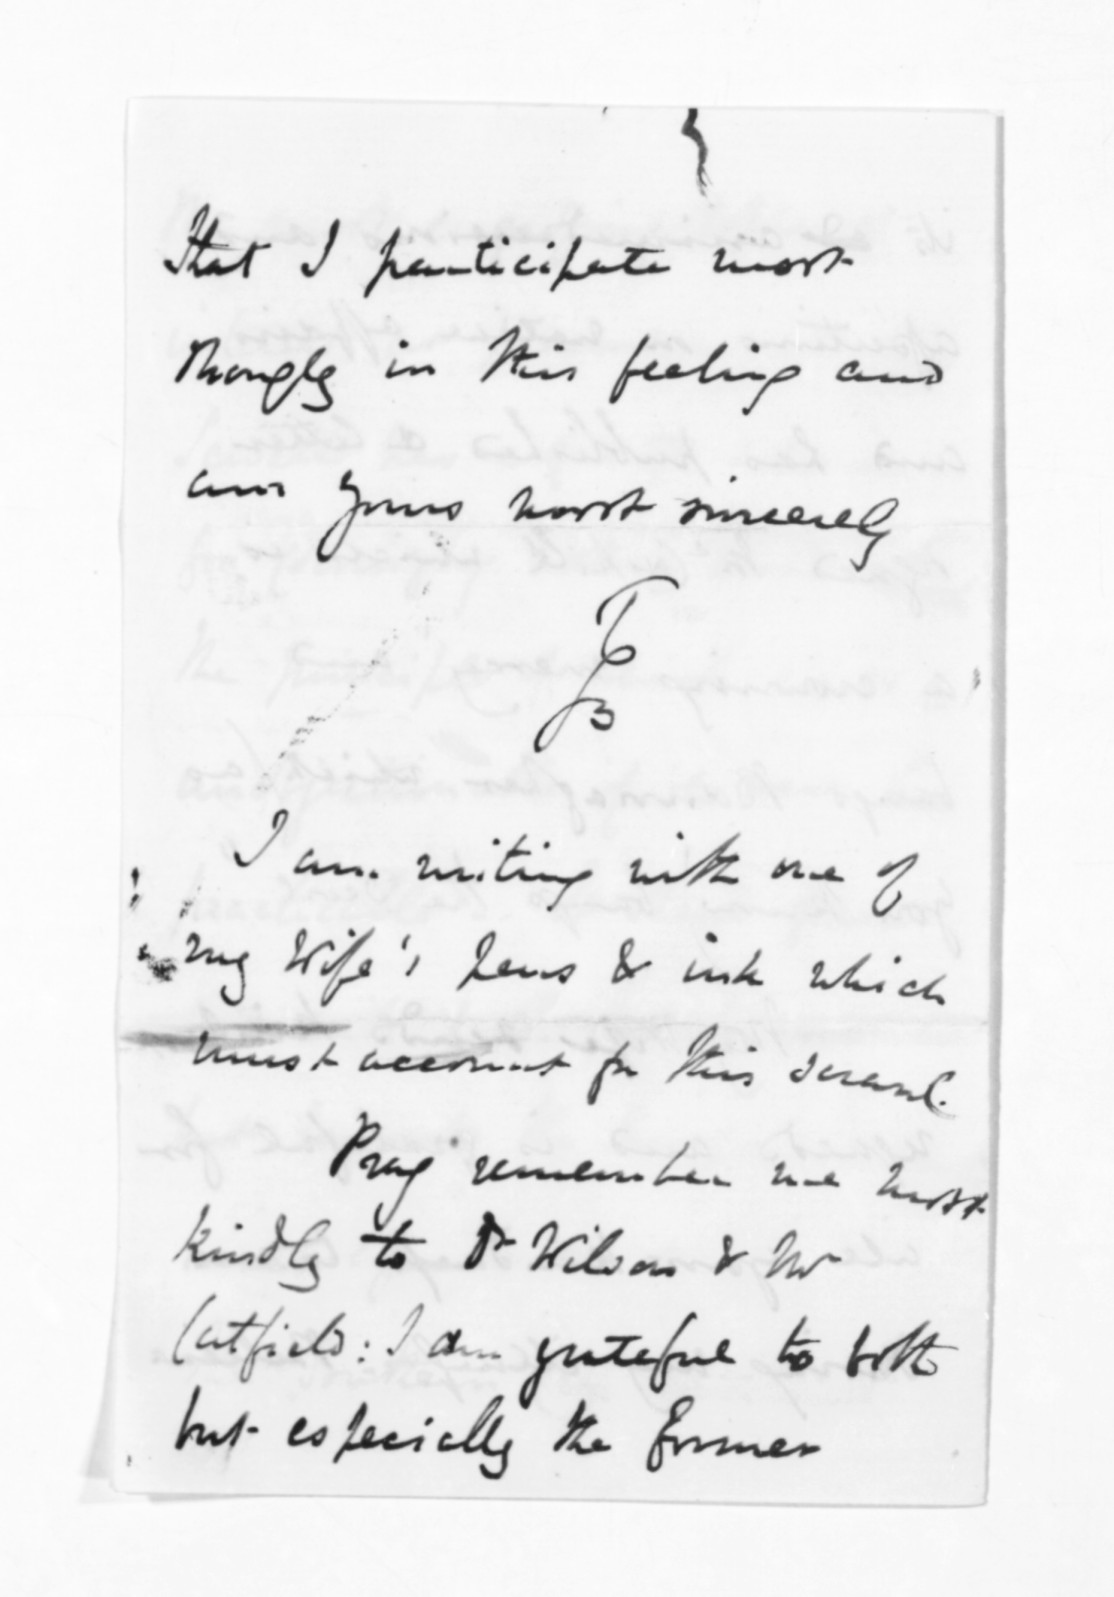 that I participate most
strongly in this feeling and
am yours most sincerely
TGB
I am writing with one of
my Wife's pens & ink which
must account for this scrawl.
Pray remember me most
kindly to Dr Wilson & Mr
Catfield: I am grateful to both
but especially the former